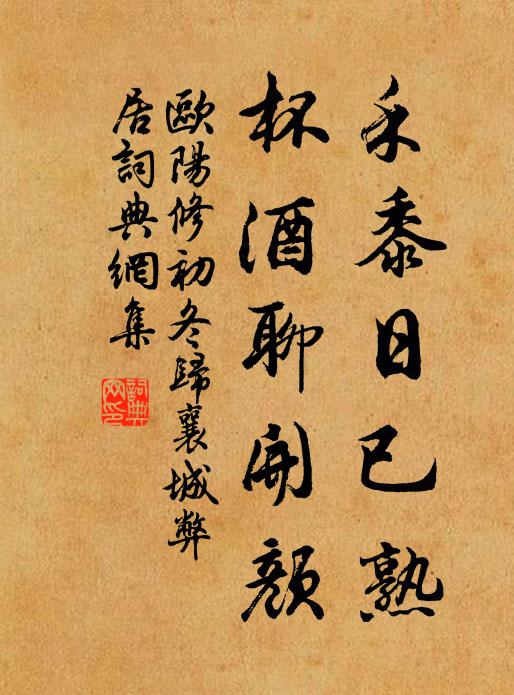 禾黍日已熟
杯酒聊開顏
歐陽修初冬歸襄城弊
居詞典網集
詞典
网印